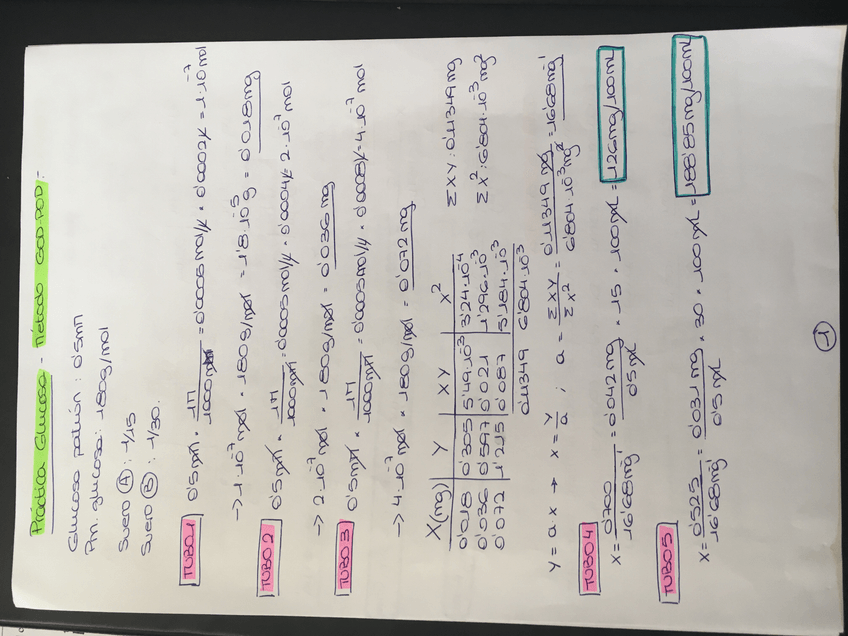 Práctica Glucosa - Método GOD-POD:
Glucosa patrón: 0'5mM
Pm. glucosa: 180g/mol
Suero A: 1/15
Suero B: 1/30.
TUBO 1 0'5mM · 1M/1000mM = 0'0005 mol/L · 0'0002L = 1·10⁻⁷ mol
→ 1·10⁻⁷ mol · 180g/mol = 1'8·10⁻⁵ g = 0'018mg
TUBO 2 0'5mM · 1M/1000mM = 0'0005 mol/L · 0'0004L = 2·10⁻⁷ mol
→ 2·10⁻⁷ mol · 180g/mol = 0'036 mg
TUBO 3 0'5mM · 1M/1000mM = 0'0005 mol/L · 0'0008L = 4·10⁻⁷ mol
→ 4·10⁻⁷ mol · 180g/mol = 0'072 mg
X(mg) Y XY X²
0'018 0'305 5'49·10⁻³ 3'24·10⁻⁴ ΣXY: 0'11349 mg
0'036 0'597 0'021 1'296·10⁻³ ΣX²: 6'804·10⁻³ mg²
0'072 1'215 0'087 5'184·10⁻³
0'11349 6'804·10⁻³
Y = a x → x = Y/a ; a = ΣXY/ΣX² = 0'11349 mg/6'804·10⁻³ mg² = 16'68mg⁻¹
TUBO 4
X = 0'700/16'68mg⁻¹ = 0'042mg/0'5mL · 15 · 100mL = 126mg/100mL
TUBO 5
X = 0'523/16'68mg⁻¹ = 0'031 mg/0'5mL · 30 · 100mL = 188'85mg/100mL
1